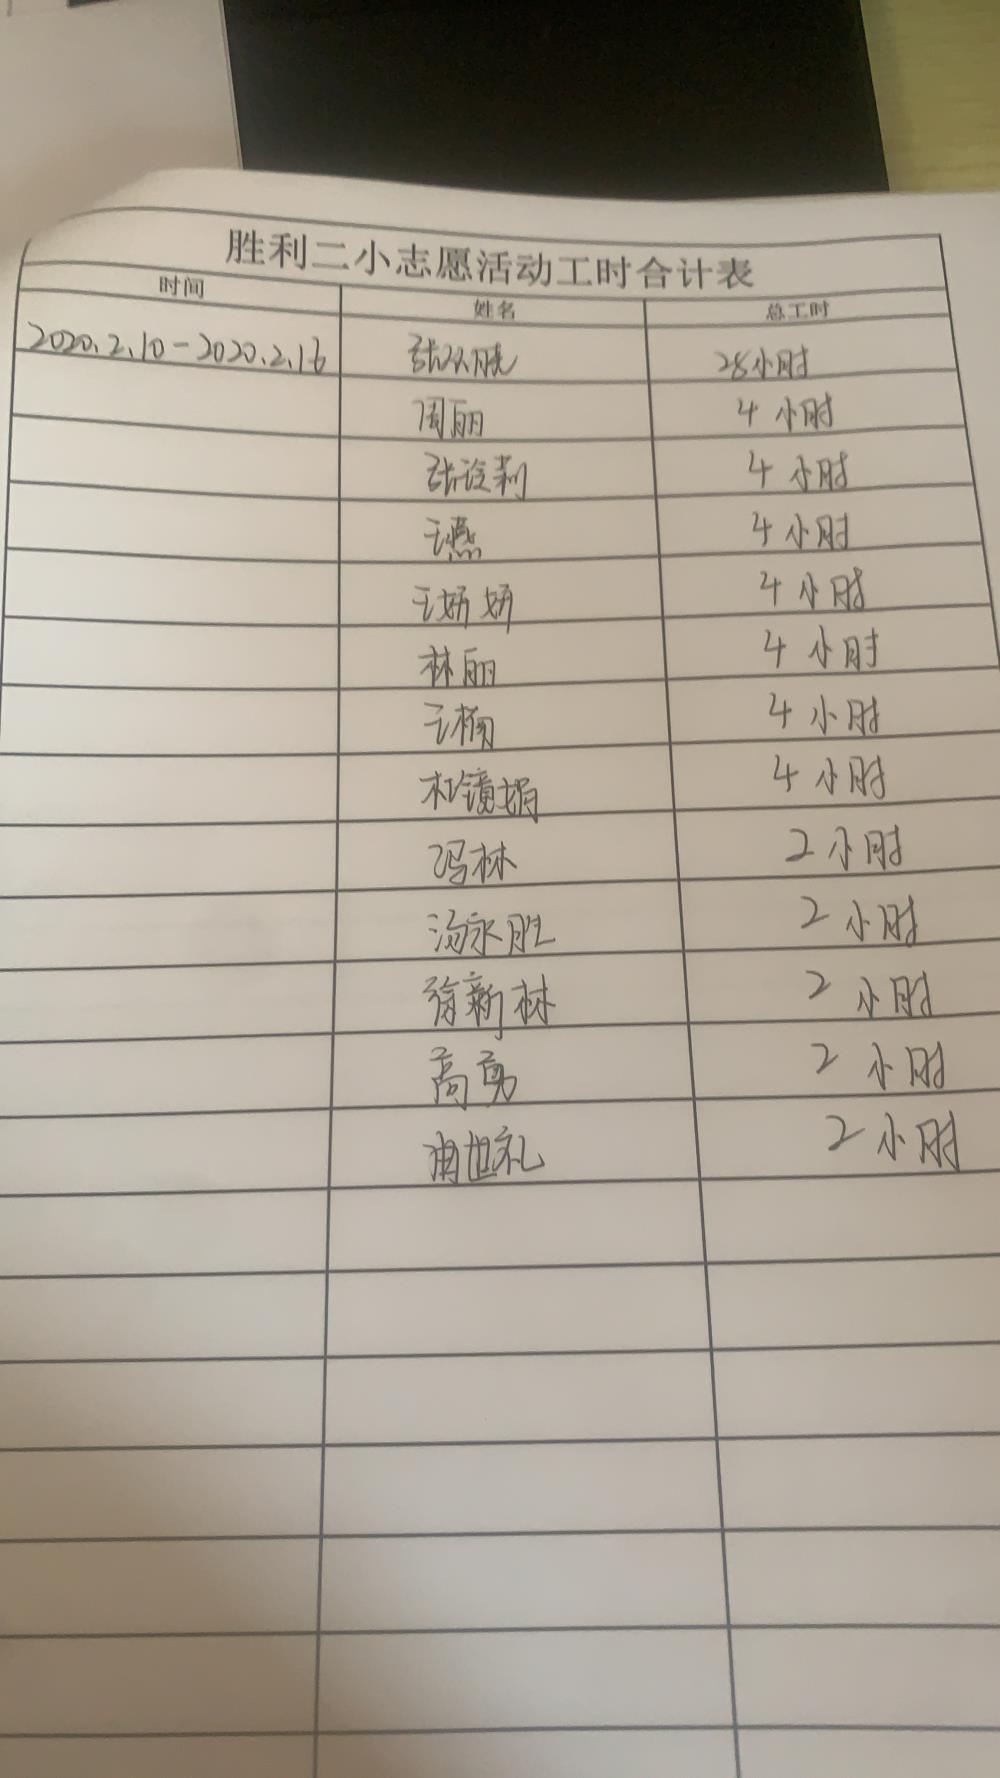 胜利二小志愿活动工时合计表
时间 姓名 总工时
2020.2.10-2020.2.16 张以晓 28小时
周丽 4小时
张设莉 4小时
王燕 4小时
王妍妍 4小时
林丽 4小时
王楠 4小时
杜镜娟 4小时
冯林 2小时
汤永胜 2小时
新林 2小时
高勇 2小时
世礼 2小时